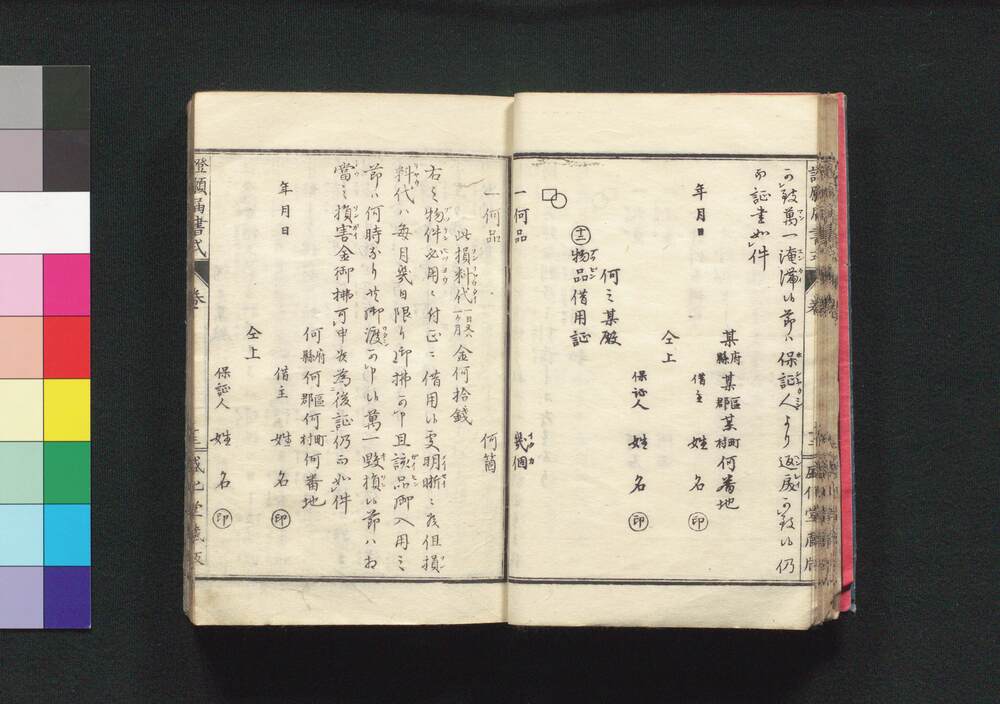 可致萬一淹滞候節ハ保証人より返戻可致候仍
而証書如件
年月日
某府縣某區郡某町村何番地
借主 姓名 印
仝上
保証人 姓名 印
何之某殿
十二 物品借用証
一何品 幾個
一何品 何箇
此損料代 金何拾銭
右之物件必用ニ付正ニ借用候処明晰ニ候但損
料代ハ毎月幾日限り御拂可申且該品御入用之
節ハ何時なり共御渡可申候萬一毀損候節ハ相
當之損害金御拂可申候為後証仍而如件
年月日
何府縣何區郡何町村何番地
借主 姓名 印
仝上
保証人 姓名 印
證願届書式 卷